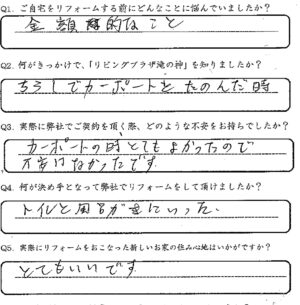 Q1. ご自宅をリフォームする前にどんなことに悩んでいましたか？
金額的なこと
Q2. 何がきっかけで、「リビングプラザ滝の神」を知りましたか？
ちらしでカーポートをたのんだ時
Q3. 実際に弊社でご契約を頂く際、どのような不安をお持ちでしたか？
カーポートの時とてもよかったので
不安はなかったです
Q4. 何が決め手となって弊社でリフォームをして頂けましたか？
トイレと風呂が気にいった
Q5. 実際にリフォームをおこなった新しいお家の住み心地はいかがですか？
とてもいいです